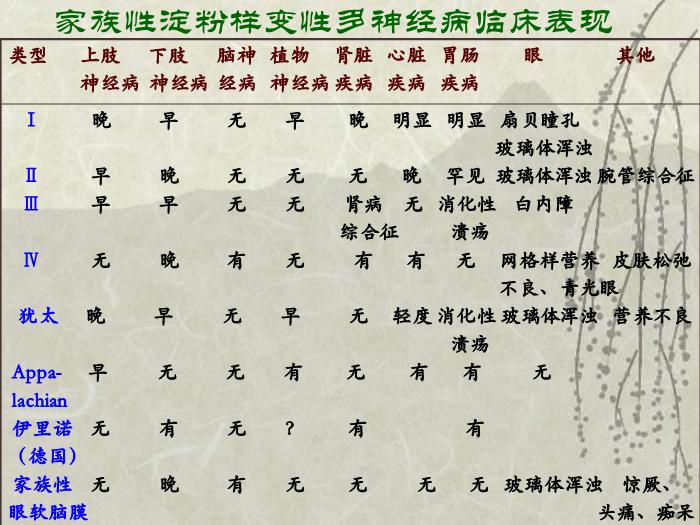 家族性淀粉样变性多神经病临床表现
类型 上肢 下肢 脑神 植物 肾脏 心脏 胃肠 眼 其他
神经病 神经病 经病 神经病 疾病 疾病 疾病
Ⅰ 晚 早 无 早 晚 明显 明显 扇贝瞳孔
玻璃体浑浊
Ⅱ 早 晚 无 无 无 晚 罕见 玻璃体浑浊 腕管综合征
Ⅲ 早 早 无 无 肾病 无 消化性 白内障
综合征 溃疡
Ⅳ 无 晚 有 无 有 有 无 网格样营养 皮肤松弛
不良、青光眼
犹太 晚 早 无 早 无 轻度 消化性 玻璃体浑浊 营养不良
溃疡
Appa- 早 无 无 有 无 有 有 无
lachian
伊里诺 无 有 无 ? 有 有
（德国）
家族性 无 晚 有 无 无 无 无 玻璃体浑浊 惊厥、
眼软脑膜 头痛、痴呆